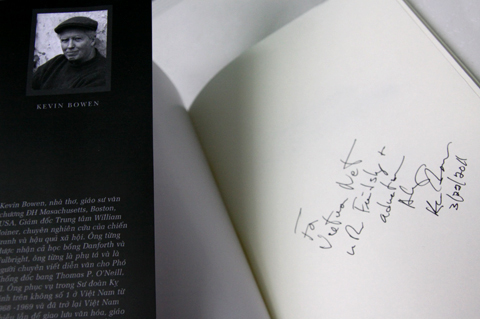 KEVIN BOWEN
Kevin Bowen, nhà thơ, giáo sư văn
chương ĐH Masachusetts, Boston,
USA. Giám đốc Trung tâm William
Joiner, chuyên nghiên cứu của chiến
tranh và hậu quả xã hội. Ông từng
được nhận cả học bổng Danforth và
Fulbright, ông từng là phụ tá và là
người chuyên viết diễn văn cho Phó
Thống đốc bang Thomas P. O'Neill,
II. Ông phục vụ trong Sư đoàn Kỵ
binh trên không số 1 ở Việt Nam từ
1968 -1969 và đã trở lại Việt Nam
nhiều lần để giao lưu văn hóa, giáo
For
Vietnam Net
w/
Friendship +
admiration
3/22/2011